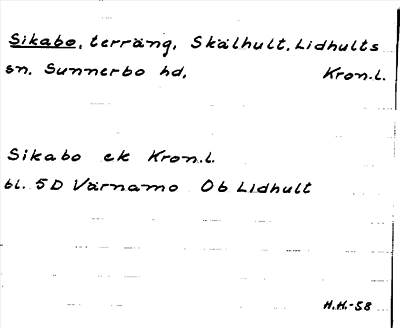 Sikabo, terräng, Skälhult, Lidhults
sn. Sunnerbo hd. Kron.l.
Sikabo ek Kron.l.
bl. 5D Värnamo Ob Lidhult
H.H.-58